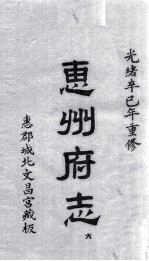 光緒辛巳年重修
惠州府志 六
惠郡城北文昌宮藏板